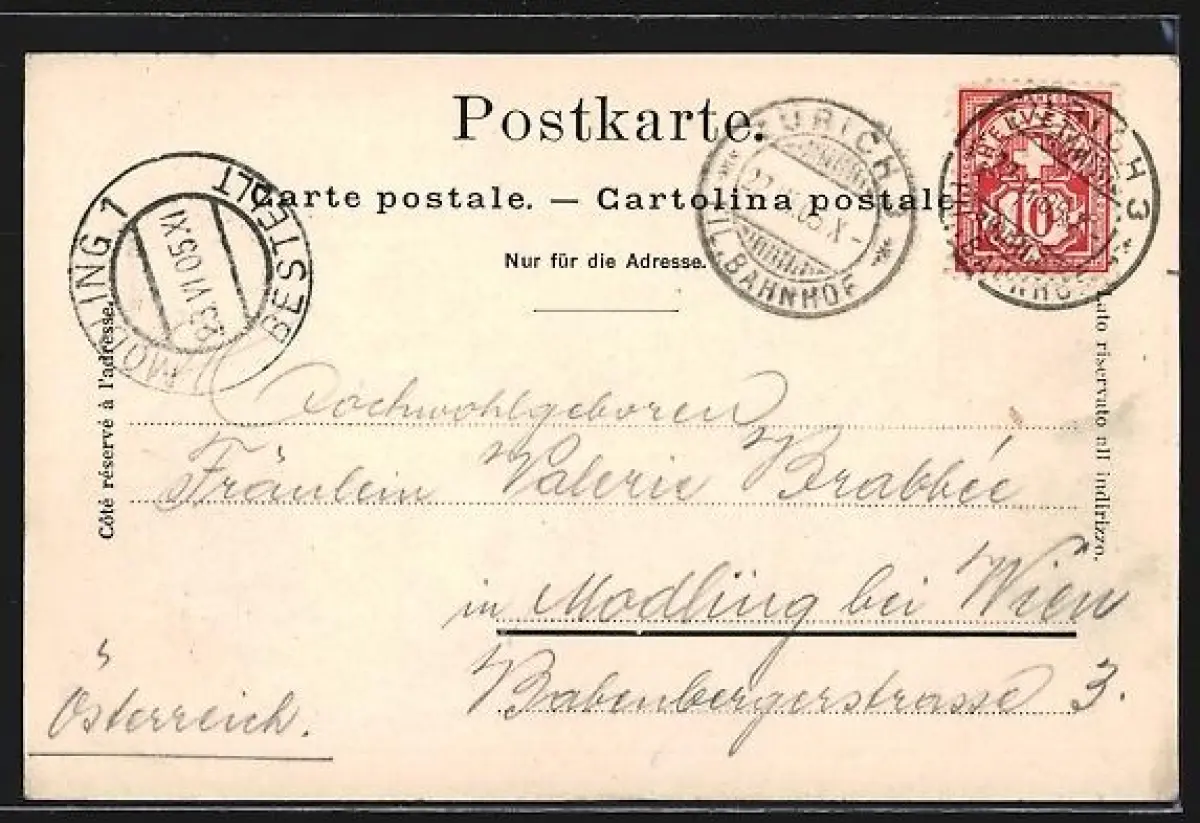 Postkarte.
Carte postale. — Cartolina postale
Nur für die Adresse.
Côté réservé à l'adresse.
Lato riservato all indirizzo.
MÖDLING 1
BESTELLT
23.VI 05.XI
ZÜRICH 3
FIL. BAHNHOF
05.X-
HELVETIA
10
ZÜRICH 3
BAHNHOF
Hochwohlgeboren
Fräulein Valerie Brabbée
in Modling bei Wien
Babenbergerstrasse 3.
Österreich.